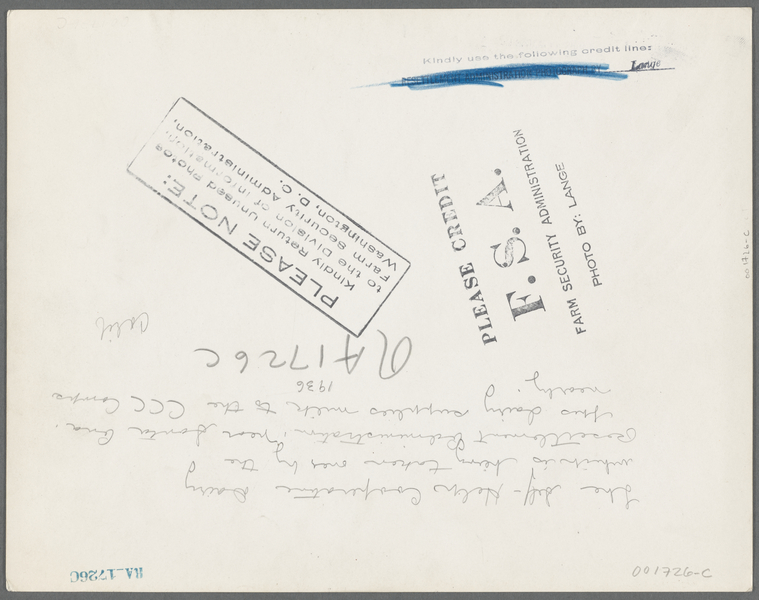 Kindly use the following credit line:
Lange
PLEASE NOTE:
Kindly Return Unused Photos
to the Division of Information,
Farm Security Administration,
Washington, D. C.
PLEASE CREDIT
F. S. A.
FARM SECURITY ADMINISTRATION
PHOTO BY: LANGE
001726-C
Calif
RA 1726 C
1936
The Self-Help Cooperative Dairy
which is being taken over by the
Resettlement Administration, near Santa Ana.
This dairy supplies milk to the CCC Camps
nearby.
RA-1726C
001726-C